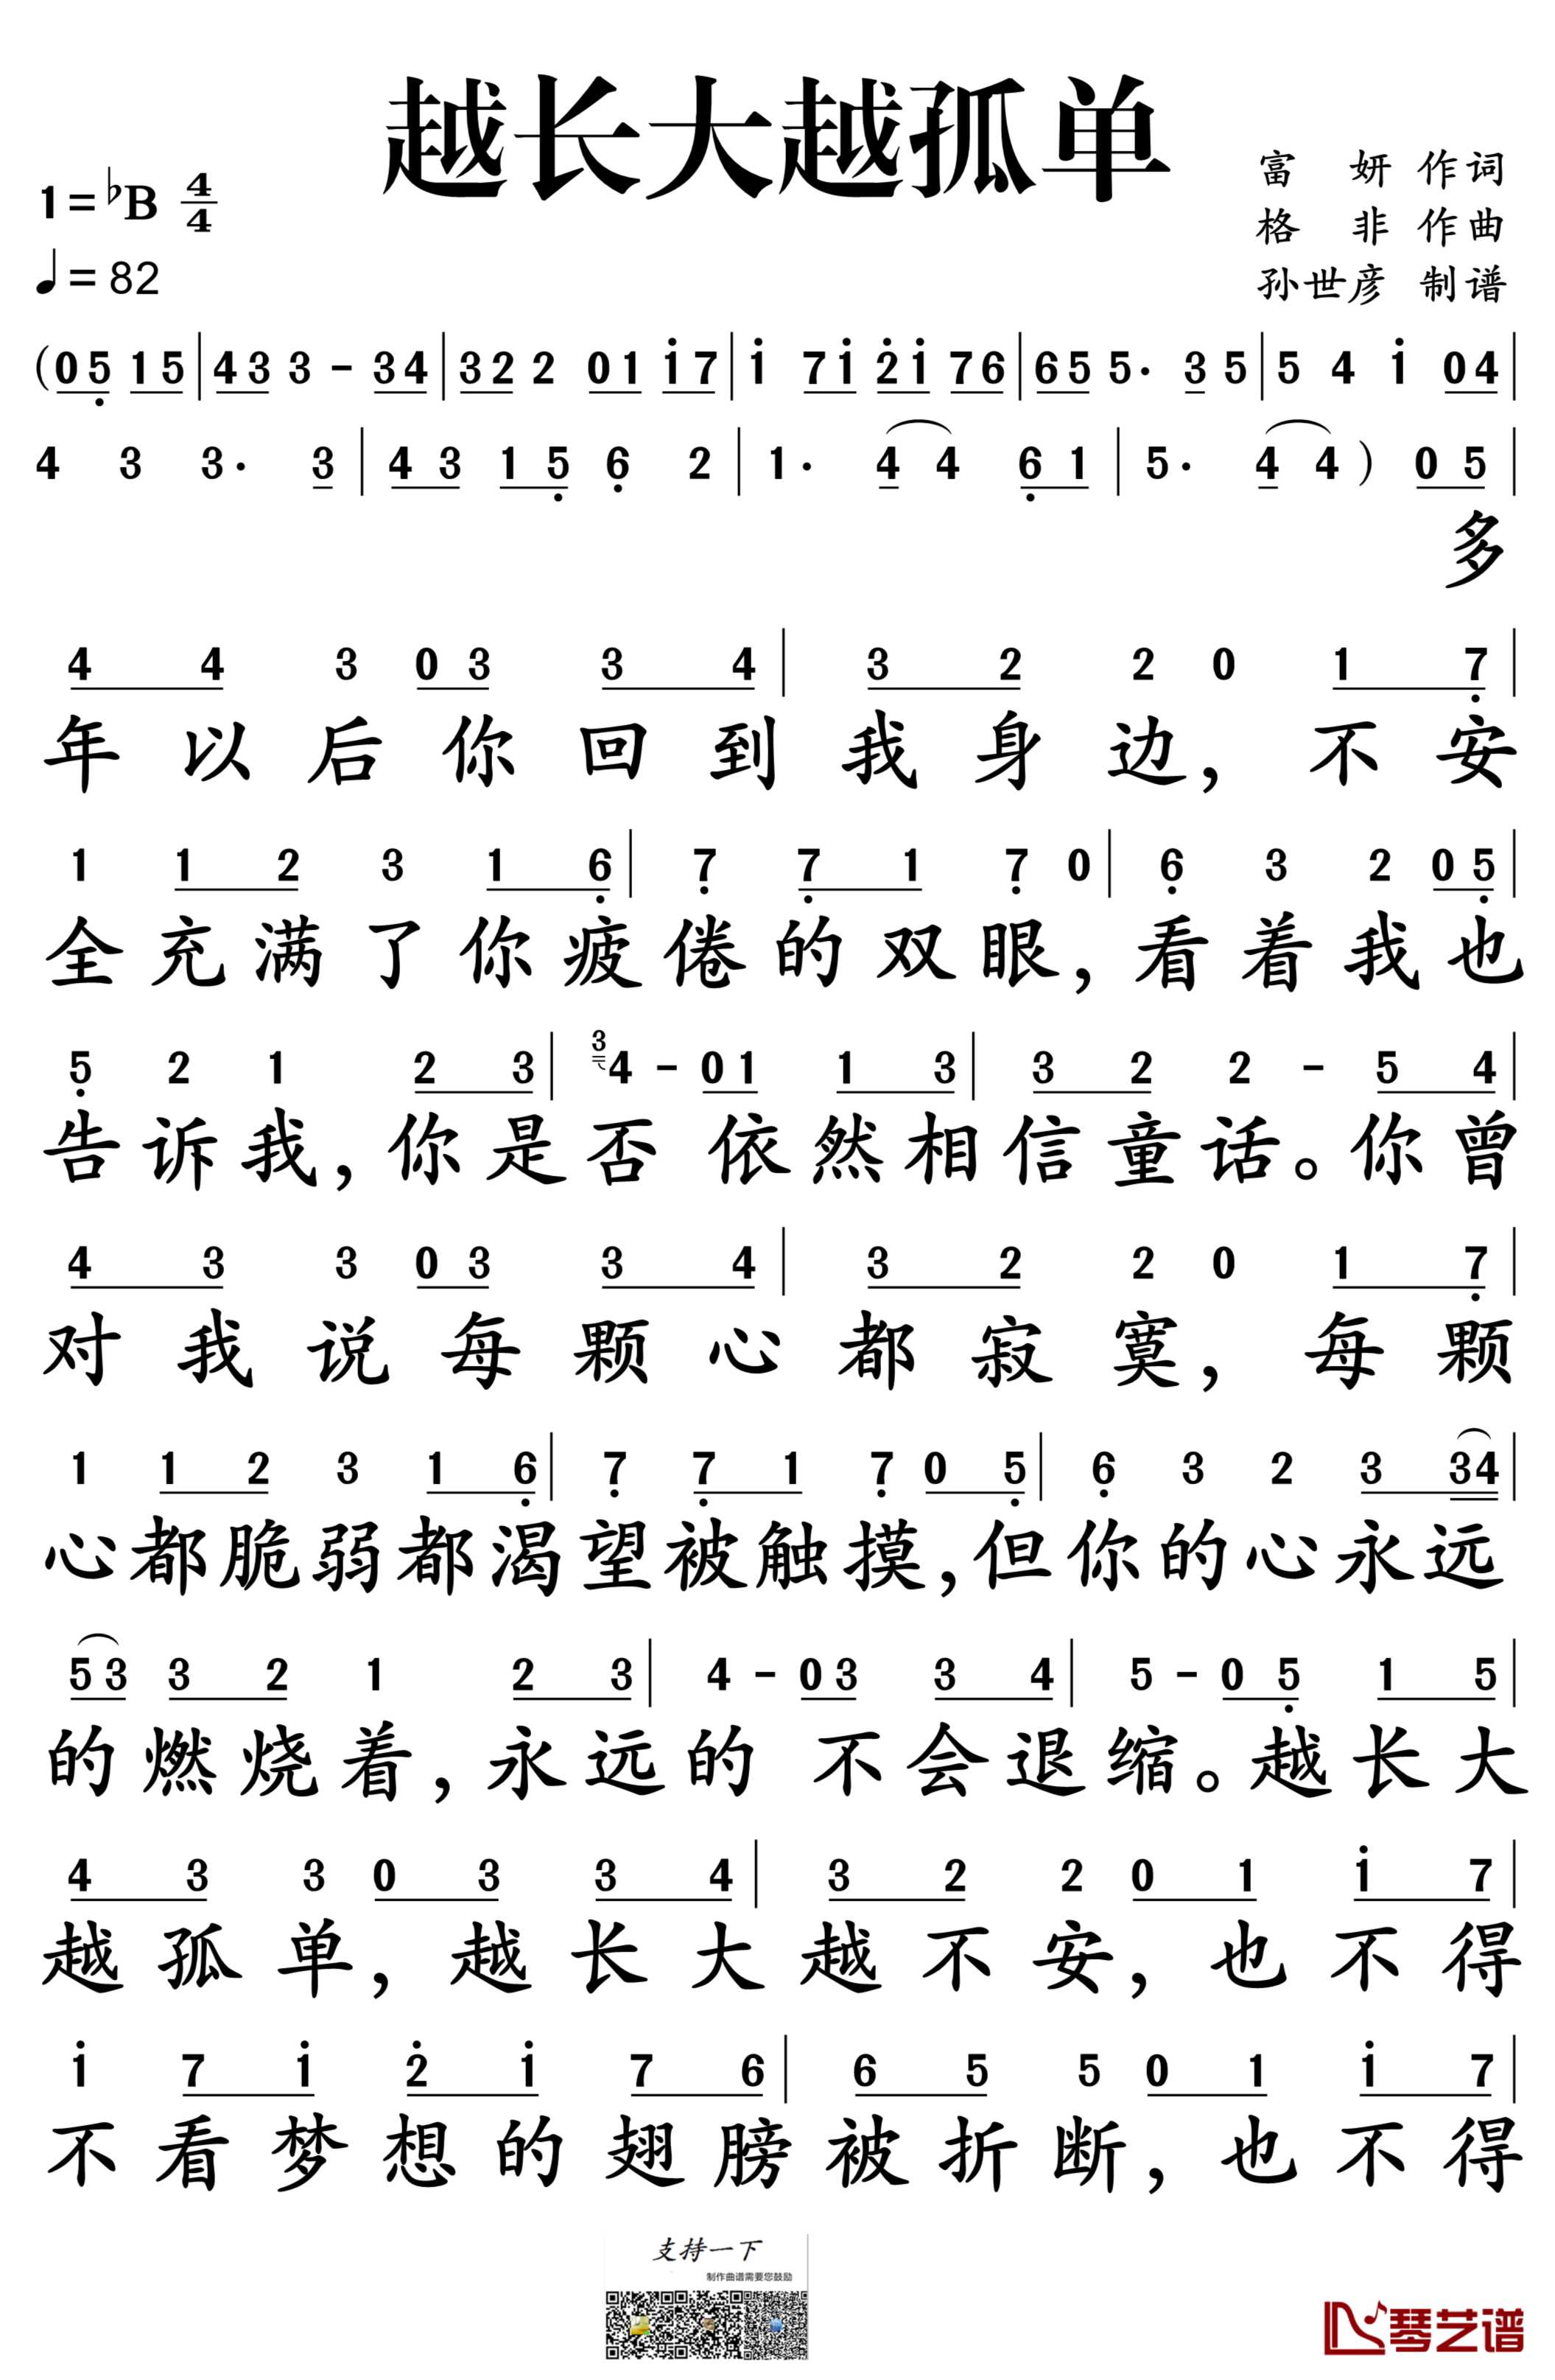 越长大越孤单
富 妍 作词
1=♭B 4/4
格 非 作曲
♩=82
孙世彦 制谱
(0 5̣ 1 5 | 4 3 3 - 3 4 | 3 2 2 0 1 1̇ 7 | 1̇ 7 1̇ 2̇ 1̇ 7 6 | 6 5 5. 3 5 | 5 4 1̇ 0 4 |
4 3 3. 3 | 4 3 1 5̣ 6̣ 2 | 1. 4 4 6̣ 1 | 5. 4 4 ) 0 5 |
多
4 4 3 0 3 3 4 | 3 2 2 0 1 7̣ |
年以后你回到我身边，不安
1 1 2 3 1 6̣ | 7̣ 7̣ 1 7̣ 0 | 6̣ 3 2 0 5̣ |
全充满了你疲倦的双眼，看着我也
5̣ 2 1 2 3 | 3 4 - 0 1 1 3 | 3 2 2 - 5 4 |
告诉我，你是否依然相信童话。你曾
4 3 3 0 3 3 4 | 3 2 2 0 1 7̣ |
对我说每颗心都寂寞，每颗
1 1 2 3 1 6̣ | 7̣ 7̣ 1 7̣ 0 5̣ | 6̣ 3 2 3 3 4 |
心都脆弱都渴望被触摸，但你的心永远
5 3 3 2 1 2 3 | 4 - 0 3 3 4 | 5 - 0 5̣ 1 5 |
的燃烧着，永远的不会退缩。越长大
4 3 3 0 3 3 4 | 3 2 2 0 1 1̇ 7 |
越孤单，越长大越不安，也不得
1̇ 7 1̇ 2̇ 1̇ 7 6 | 6 5 5 0 1 1̇ 7 |
不看梦想的翅膀被折断，也不得
支持一下
制作曲谱需要您鼓励
琴艺谱